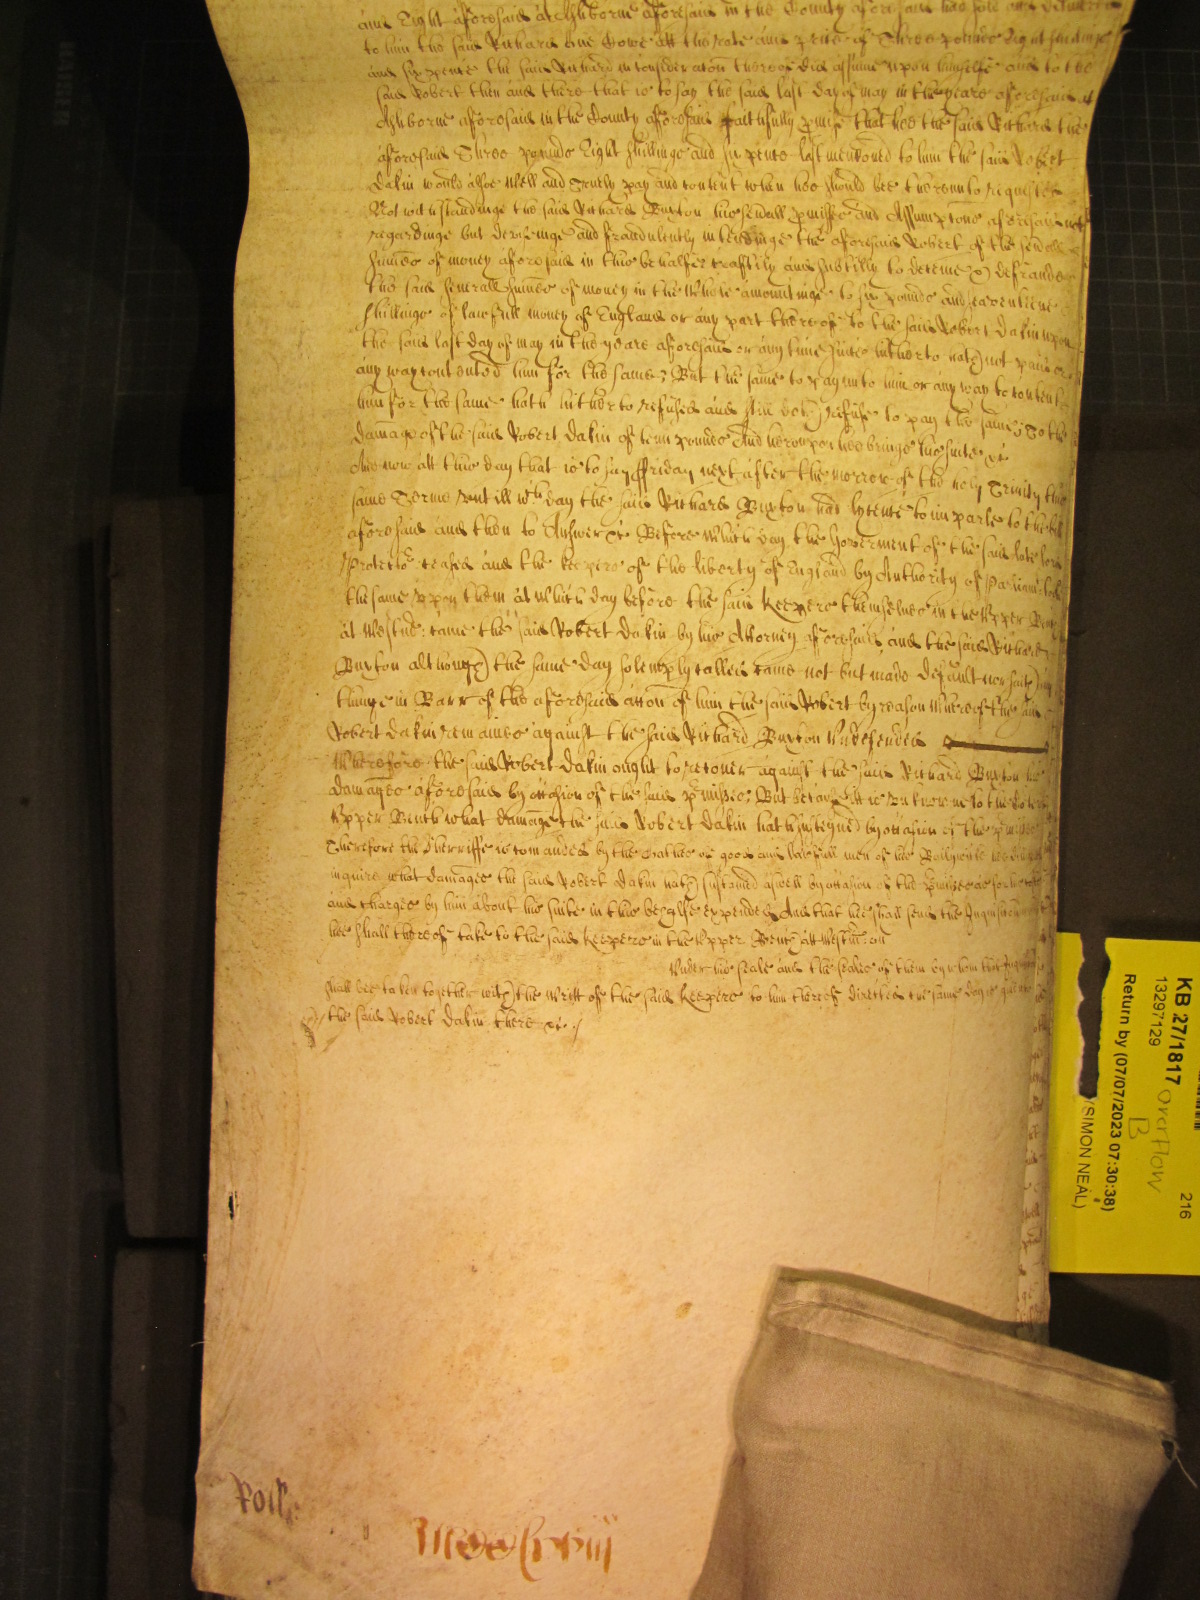 and Eight aforesaid at Ashborne aforesaid in the County aforesaid had sold and delivered
to him the said Richard one Cowe att the rate and price of Three pounds Eight shillings
and six pence the said Richard in consideracon thereof did assume upon himselfe and to the
said Robert then and there that is to say the said last day of may in the yeare aforesaid at
Ashborne aforesaid in the County aforesaid faithfully pmise that hee the said Richard the
aforesaid Three pounds Eight shillings and six pence last menconed to him the said Robert
Dakin would alsoe well and Truely pay and content when hee should bee thereunto requested
Notwithstandinge the said Richard Buxton his sevall pmisses and Assumptons aforesaid not
regardinge but deviseinge and fraudulently intendinge the aforesaid Robert of the sevall
summes of money aforesaid in this behalfe craftily and subtilly to deceive & defraude
the said severall summes of money in the whole amountinge to six pounds and seaventeene
shillings of lawfull money of England or any part thereof to the said Robert Dakin upon
the said last day of may in the yeare aforesaid or any time since hitherto hath not paid or
any way contented him for the same; But the same to pay unto him or any way to content
him for the same hath hitherto refused and still doth refuse to pay the same; To the
damage of the said Robert Dakin of tenn pounds And hereupon hee brings his suite &c
And now att this day that is to say ffriday next after the morrow of the holy Trinity this
same Terme untill wch day the said Richard Buxton had lycence to imparle to the bill
aforesaid and then to Answer &c Before which day the Goverment of the said late lord
Protector ceased and the keepers of the liberty of England by Authority of Parliamt tooke
the same upon them at which day before the said keepers themselves in the Upper Bench
at Westmr: came the said Robert Dakin by his Attorney aforesaid, and the said Richard
Buxton although the same day solemply called came not but made default nor saith any
thinge in Barr of the aforesaid accon of him the said Robert by reason whereof the said
Robert Dakin remaines against the said Richard Buxton Undefended
Wherefore the said Robert Dakin ought to recover against the said Richard Buxton his
damages aforesaid by occasion of the said pmisses; But because itt is unknowne to the Court
Upper Bench what damage the said Robert Dakin hath susteyned by occasion of the pmisses
Therefore the Sherriffe is comanded by the oathes of good and lawfull men of his Bailywicke hee diligently
inquire what damages the said Robert Dakin hath sustained aswell by occasion of the pmisses as for his costs
and charges by him about his suite in this behalfe expended And that hee shall send the Inquisicon
hee shall thereof take to the said keepers in the Upper Bench att Westmr: on
Under his seale and the seales of them by whom that Inquisicon
shall bee taken together with the writt of the said keepers to him thereof directed the same day is given to
the said Robert Dakin there &c
KB 27/1817 overflow
13297129
B
216
Return by (07/07/2023 07:30:38)
(SIMON NEAL)